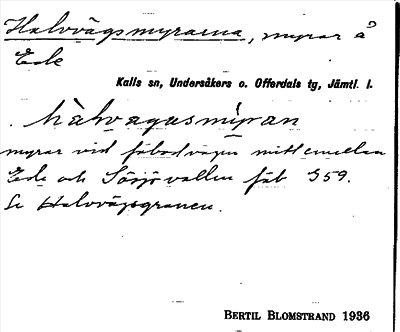 Halvvägsmyrarna, myrar å
Ede
Kalls sn, Undersåkers o. Offerdals tg, Jämtl. l.
myrar vid fäbodvägen mitt emellan
Ede och Sösjövallen fäb 359.
Se Halvvägsgranen.
BERTIL BLOMSTRAND 1936